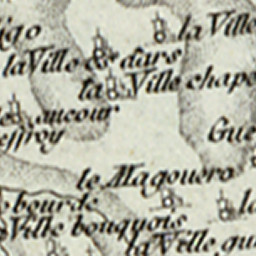 igo
la Ville
la Ville & dars
la Ville chape
aucour
effroy
Gue
le Magouero
bourde
Ville bouquois
la
la Ville gu